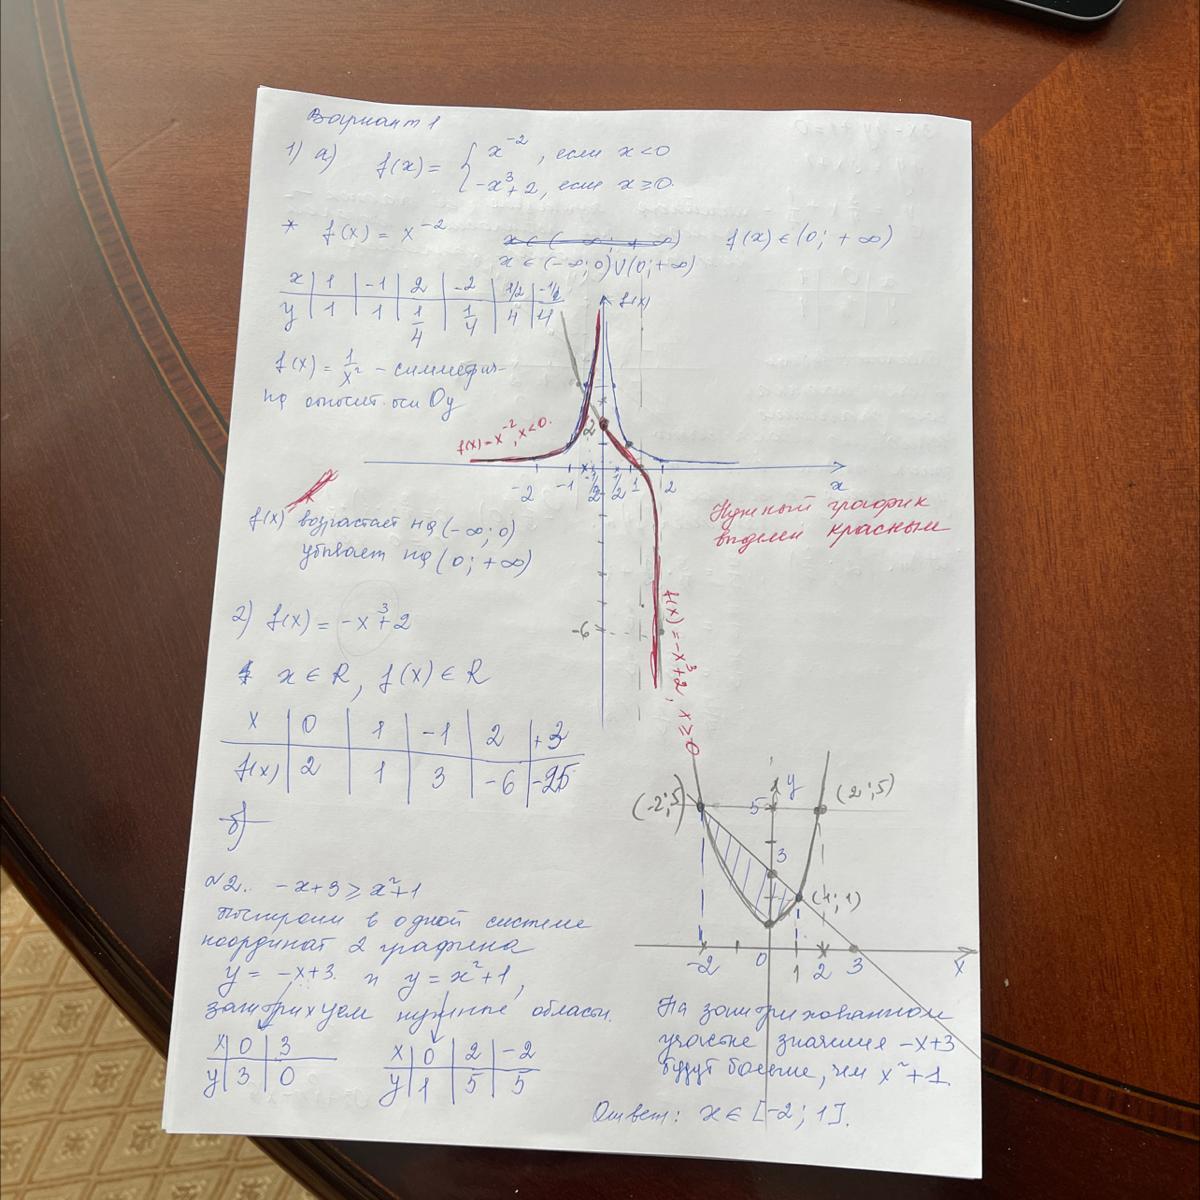 Вариант 1
1) а) f(x) = { x⁻², если x<0
-x³+2, если x≥0.
* f(x) = x⁻² f(x) ∈ (0; +∞)
x ∈ (-∞; 0)∪(0; +∞)
x | 1 | -1 | 2 | -2 | 1/2 | -1/2
y | 1 | 1 | 1/4 | 1/4 | 4 | 4
f(x) = 1/x² - симметрич-
на относит. оси Oy
f(x)
f(x) = x⁻², x<0.
2
-2 -1 -1/2 1/2 1 2 x
-6
f(x) = -x³+2, x≥0
Нужный график
выделен красным
f(x) возрастает на (-∞; 0)
убывает на (0; +∞)
2) f(x) = -x³+2
x ∈ R, f(x) ∈ R
x | 0 | 1 | -1 | 2 | +3
f(x) | 2 | 1 | 3 | -6 | -25
б)
№2. -x+3 ≥ x²+1
Построим в одной системе
координат 2 графика
y = -x+3 и y = x²+1,
заштрихуем нужные области.
x | 0 | 3
y | 3 | 0
x | 0 | 2 | -2
y | 1 | 5 | 5
(-2; 5) 5 y (2; 5)
3
(1; 1)
-2 0 1 2 3 x
На заштрихованном
участке значения -x+3
будут больше, чем x²+1.
Ответ: x ∈ [-2; 1].